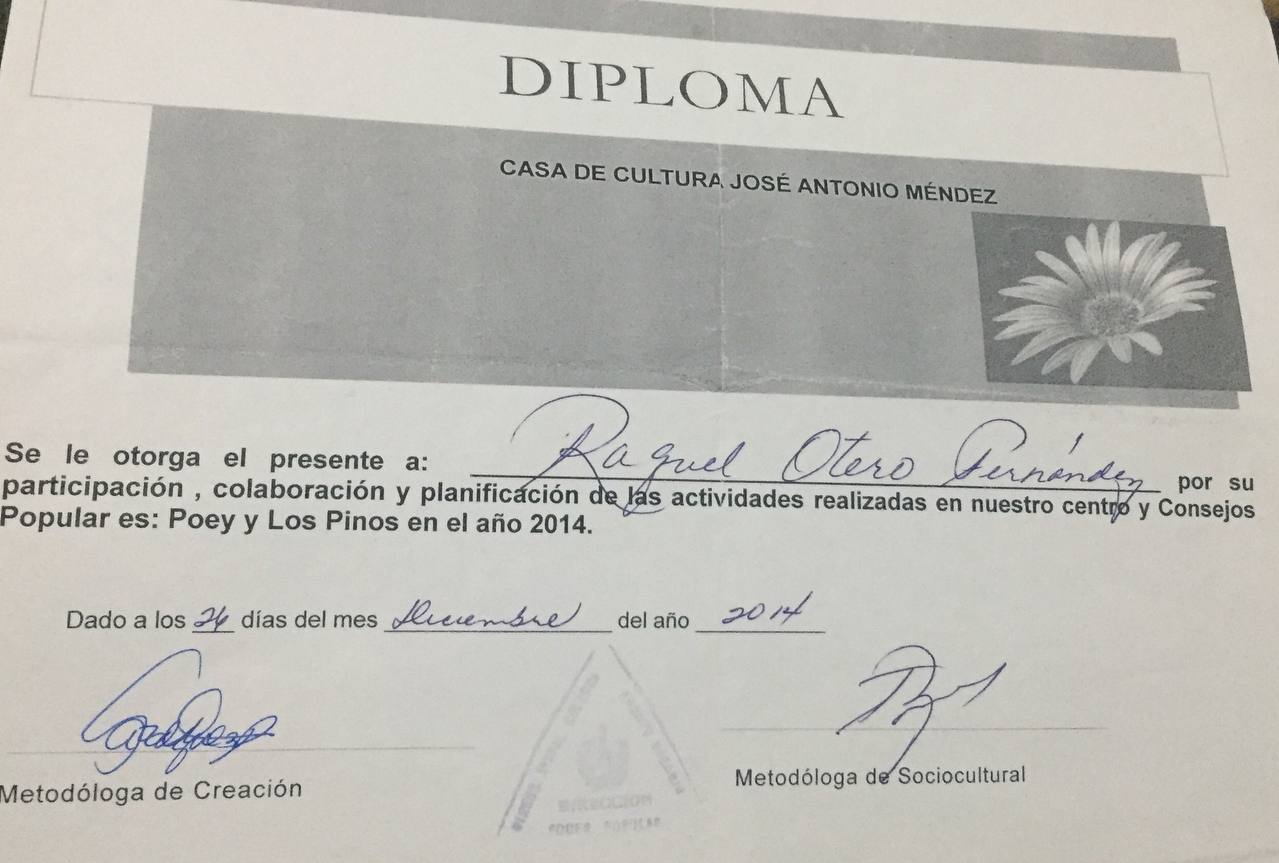 DIPLOMA
CASA DE CULTURA JOSÉ ANTONIO MÉNDEZ
Se le otorga el presente a: Raquel Otero Fernández por su
participación , colaboración y planificación de las actividades realizadas en nuestro centro y Consejos
Popular es: Poey y Los Pinos en el año 2014.
Dado a los 26 días del mes Diciembre del año 2014
Metodóloga de Creación
Metodóloga de Sociocultural
DIRECCION
PODER POPULAR